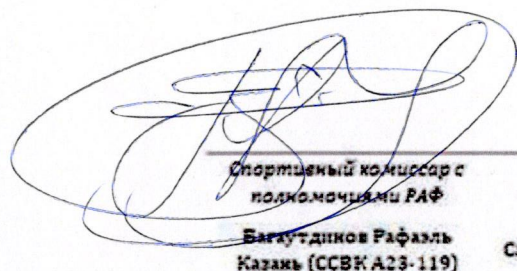 Спортивный комиссар с
полномочиями РАФ
Багаутдинов Рафаэль
Казань (ССВК А23-119)